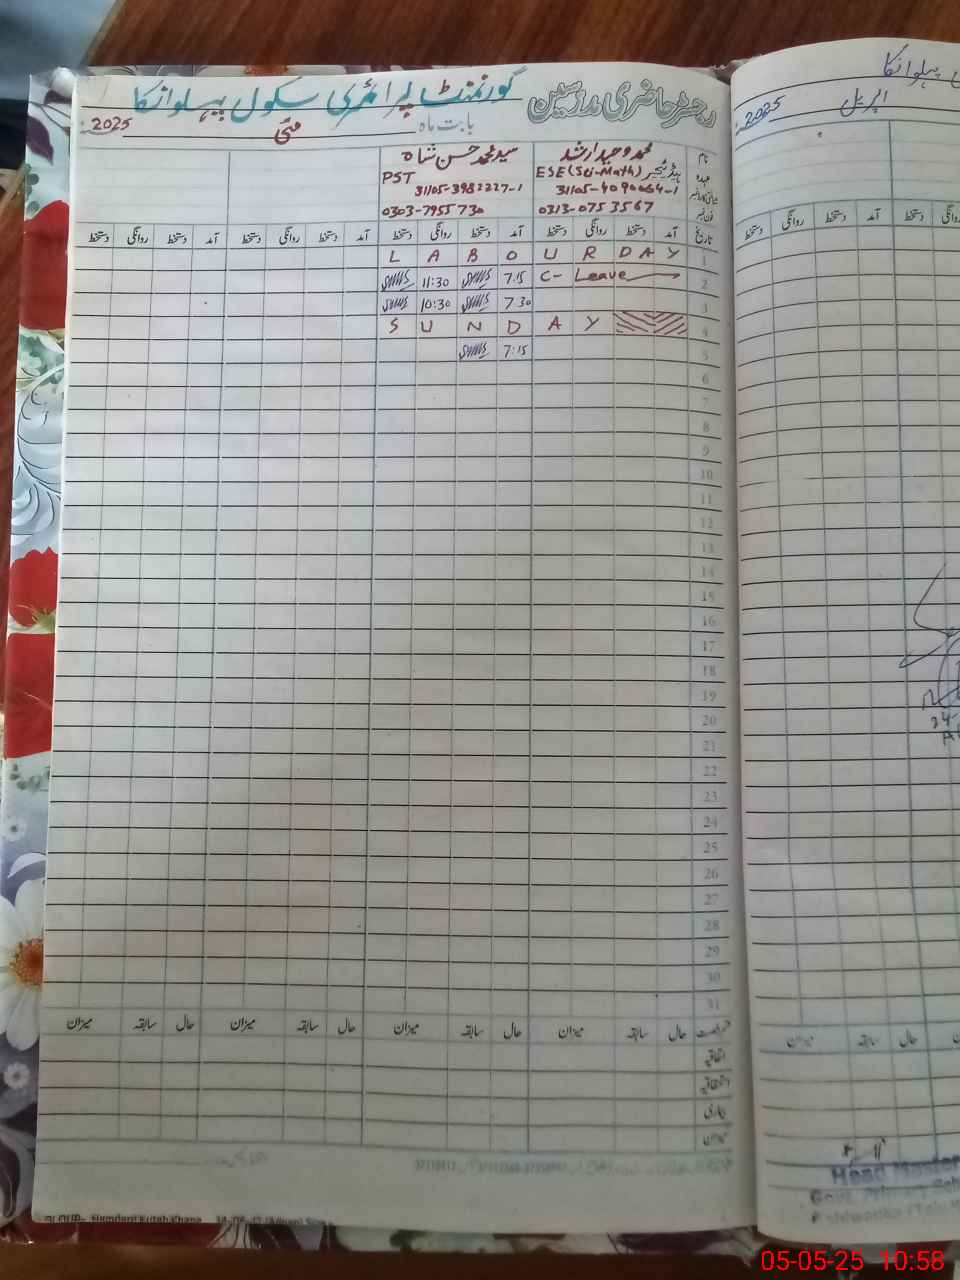 رجسٹر حاضری مدرسین گورنمنٹ پرائمری سکول پہلوانکا
بابت ماہ مئی 2025
نام محمد وحید ارشد سید محمد حسن شاہ
عہدہ ہیڈ ٹیچر ESE (Sci-Math) PST
31105-4090064-1 31105-3982227-1
فون نمبر 0313-0753567 0303-7955730
تاریخ آمد دستخط روانگی دستخط آمد دستخط روانگی دستخط آمد دستخط روانگی دستخط آمد دستخط روانگی دستخط
1 L A B O U R D A Y
2 C- Leave 7:15 11:30
3 7:30 10:30
4 S U N D A Y
5 7:15
6
7
8
9
10
11
12
13
14
15
16
17
18
19
20
21
22
23
24
25
26
27
28
29
30
31
حال سابقہ میزان حال سابقہ میزان حال سابقہ میزان حال سابقہ میزان
اتفاقیہ
استحقاقیہ
بیماری
میزان
اپریل 2025
آمد دستخط روانگی دستخط
24-
حال سابقہ میزان
Head Master
Govt. Primary Sch
05-05-25 10:58